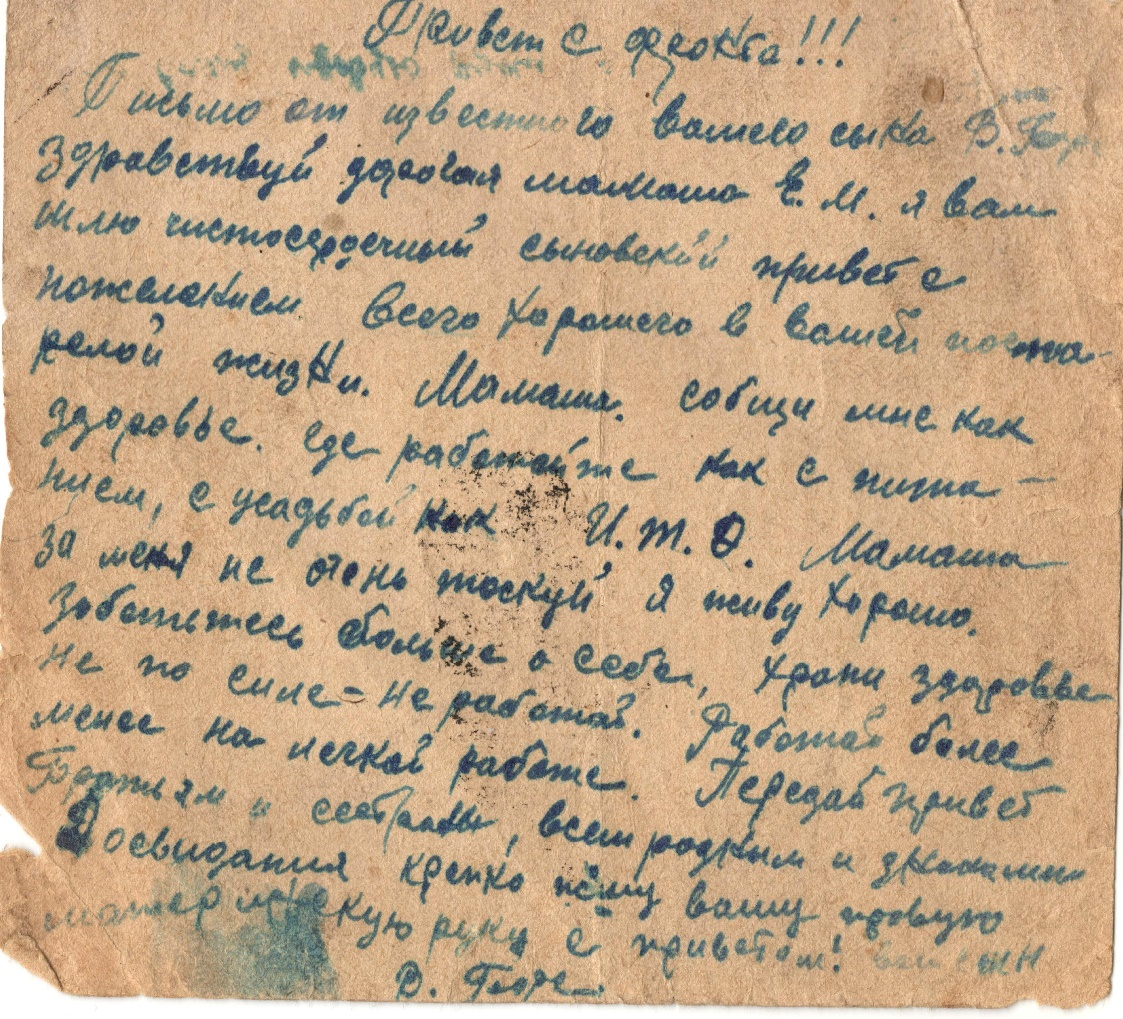 Привет с фронта!!!
Письмо от известного вашего сына В.
Здравствуй дорогая мамаша Е. М. я вам
шлю чистосердечный сыновский привет с
пожеланием всего хорошего в вашей поста-
релой жизни. Мамаша. собщи мне как
здоровье. где работайте как с пита-
нием, с усадьбой как И.Т.Д. Мамаша
за меня не очень тоскуй я живу хорошо.
Заботьтесь больше о себе, храни здоровье
не по силе - не работай. Работай более
менее на легкой работе. Передай привет
Братьям и сестрам, всем родным и знакомым
Досвидания крепко жму вашу правую
материнскую руку с приветом! ваш сын
В.